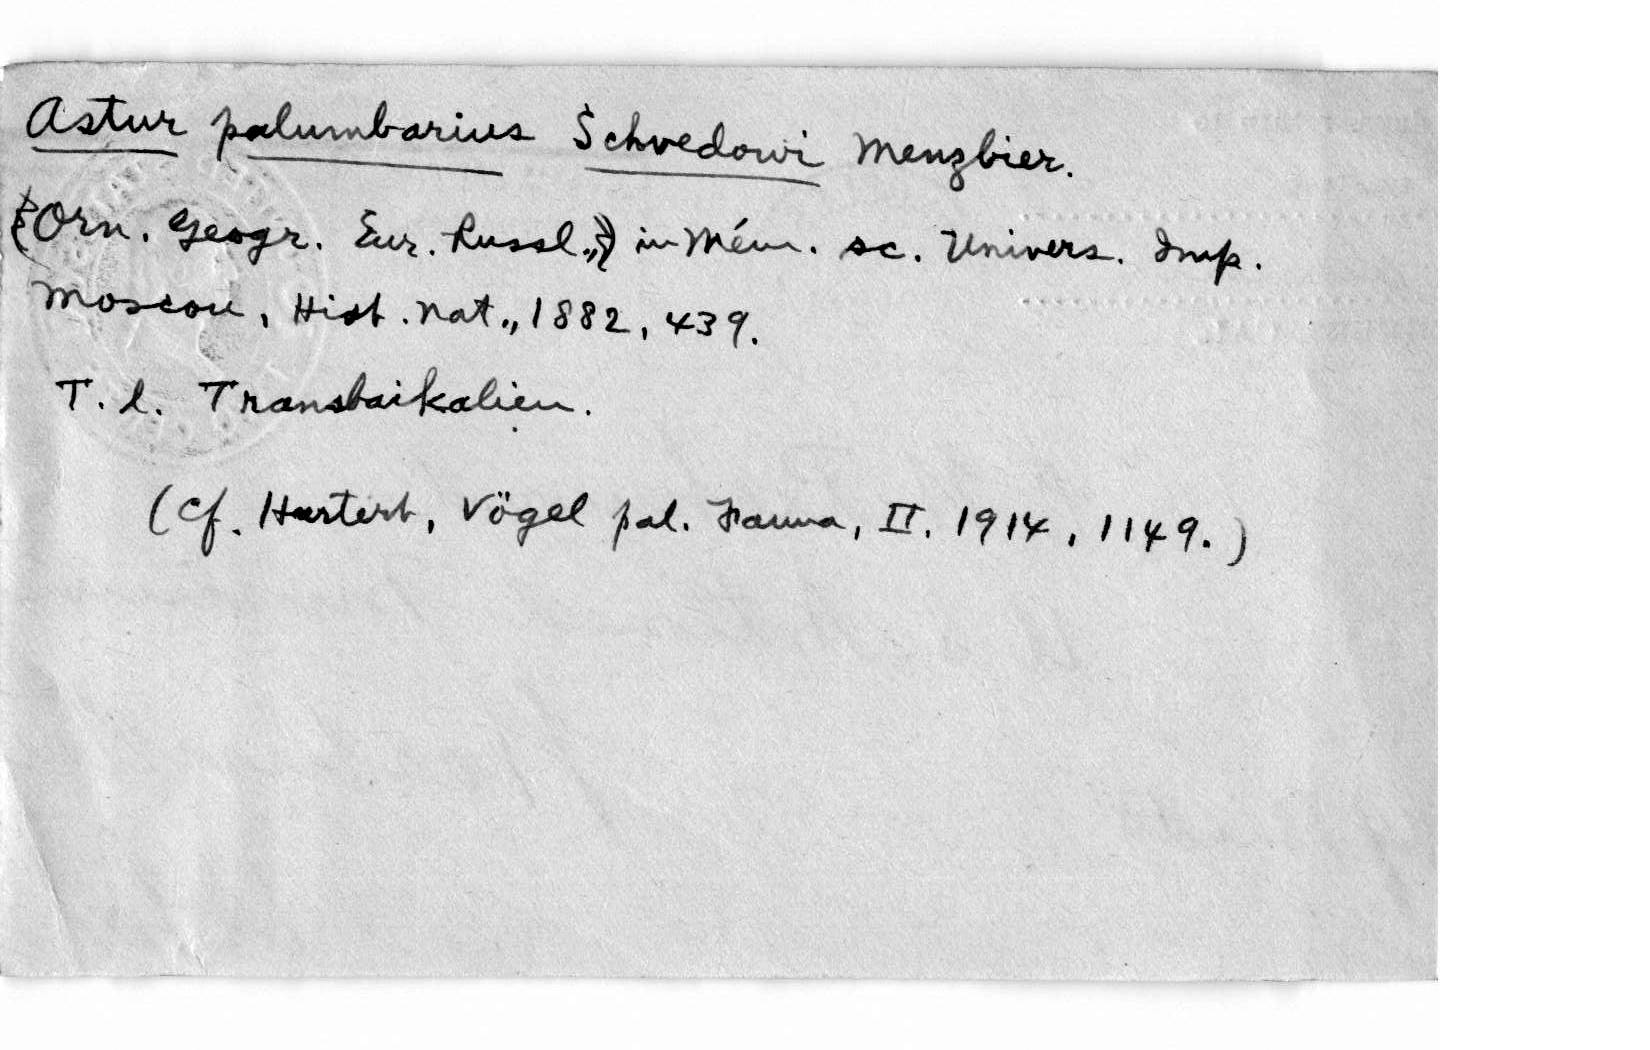 Astur palumbarius Schvedowi Menzbier.
(Orn. Geogr. Eur. Russl.,) in Mém. sc. Univers. Imp.
Moscou, Hist. nat., 1882, 439.
T. l. Transbaikalien.
(Cf. Hartert, Vögel pal. Fauna, II. 1914, 1149.)